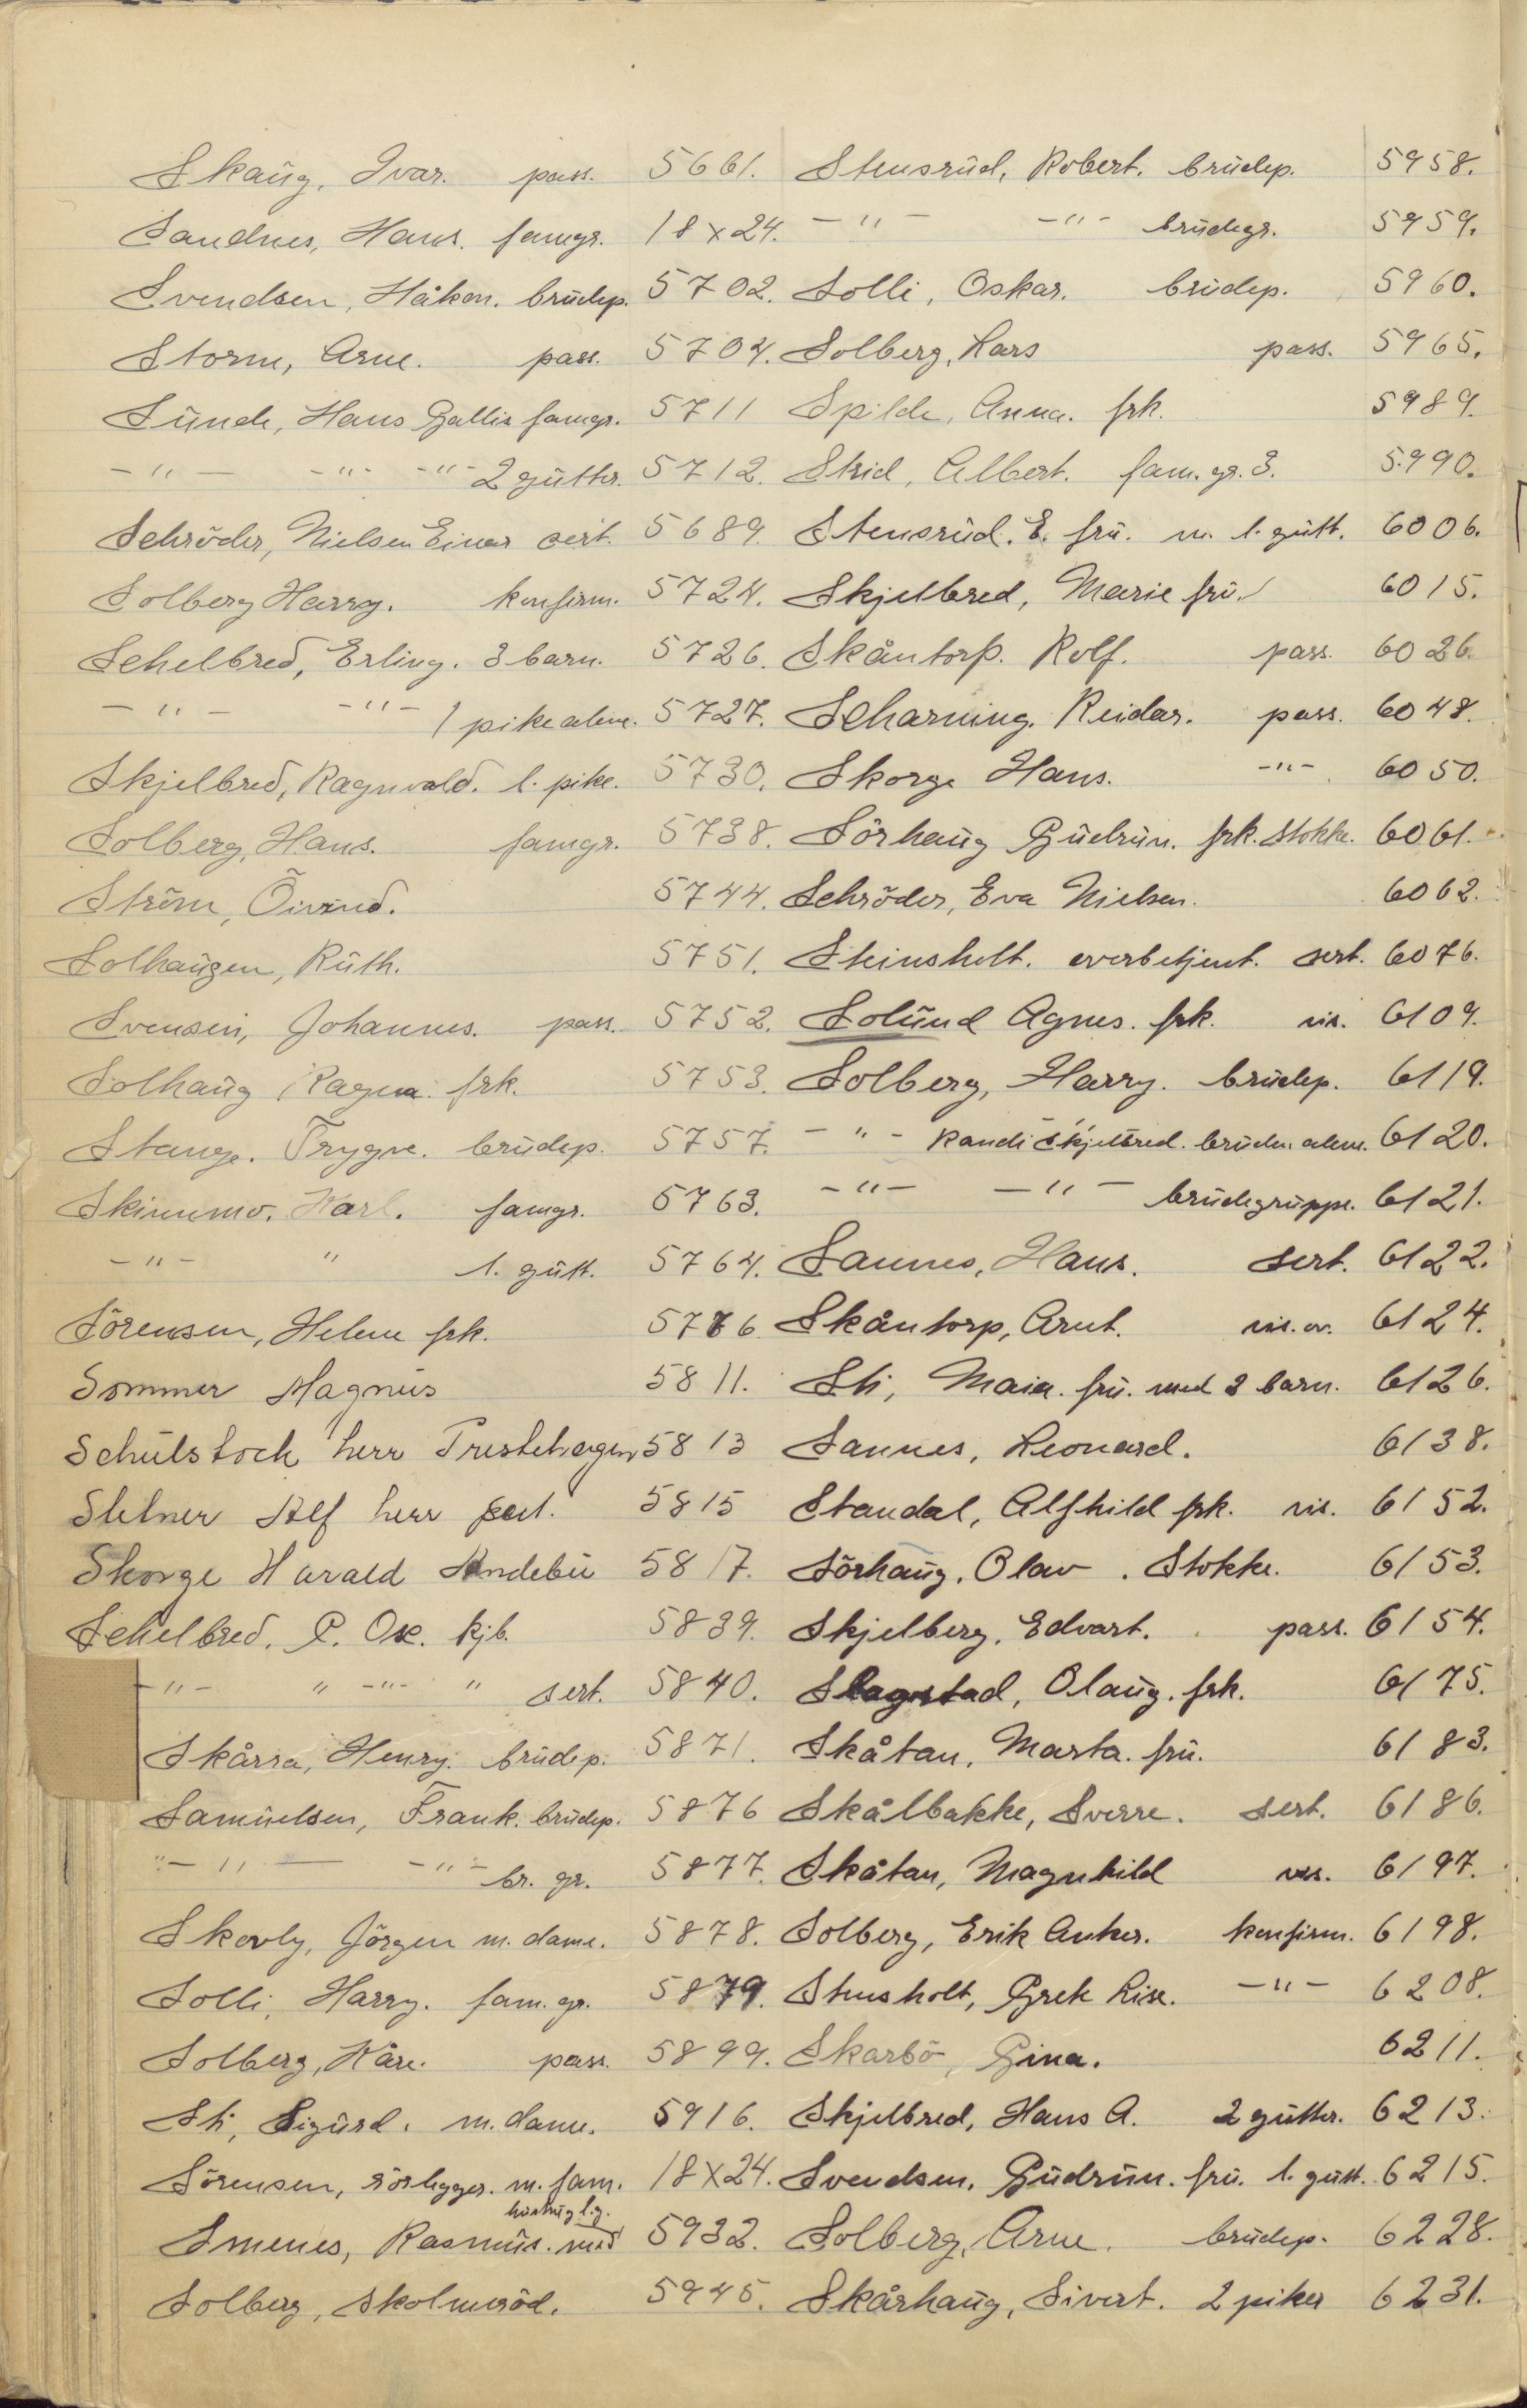 Skaug, Ivar. pass. 5661.
Sandnes, Hans. famgr. 18x24.
Svendsen, Håkon. brudep. 5702.
Storm, Arne. pass. 5704.
Sunde, Hans Gallis famgr. 5711
-"- -"- -"- 2 gutter. 5712.
Schröder, Nielsen Einar sert. 5689.
Solberg Harry. konfirm. 5724.
Schelbred, Erling. 3 barn. 5726.
-"- -"- 1 pike alene. 5727.
Skjelbred, Ragnvald. l. pike. 5730.
Solberg, Hans. famgr. 5738.
Ström, Öivind. 5744.
Solhaugen, Ruth. 5751.
Svensen, Johannes. pass. 5752.
Solhaug Ragna. frk. 5753.
Stange. Trygve. brudep. 5757.
Skinnmo. Karl. famgr. 5763.
-"- " l. gutt. 5764.
Sörensen, Helene frk. 5776
Sommer Magnus 5811.
Schulstock herr Prestehagen 5813
Sletner Alf herr sert. 5815
Skorge Harald Andebu 5817.
Schelbred. P. Ose. kjb. 5839.
-"- " -"- " sert. 5840.
Skårra, Henry. brudep. 5871.
Samuelsen, Frank. brudep. 5876
-"- -"- br. gr. 5877.
Skovly, Jörgen m. dame. 5878.
Solli, Harry. fam. gr. 5879.
Solberg, Kåre. pass. 5899.
Sti, Sigurd. m. dame. 5916.
Sörensen, rörlegger. m. fam. 18x24.
Smenes, Rasmus. med 5932.
Solberg, Skolmeröd. 5945.
Stensrud, Robert. brudep. 5958.
-"- -"- brudegr. 5959.
Solli, Oskar. brudep. 5960.
Solberg, Lars pass. 5965.
Spilde, Anna. frk. 5989.
Strid, Albert. fam. gr. 3. 5990.
Stensrud. E. fru. m. l. gutt. 6006.
Skjelbred, Marie fru. 6015.
Skåntorp. Rolf. pass. 6026.
Scharning. Reidar. pass. 6048.
Skorge Hans. -"- 6050.
Sörhaug Gudrun. frk. Stokke. 6061.
Schröder, Eva Nielsen. 6062.
Steinsholt. overbetjent. sert. 6076.
Solund Agnes. frk. vis. 6109.
Solberg, Harry. brudep. 6119.
-"- Randi Skjelbred. bruden alene. 6120.
-"- -"- brudegruppe. 6121.
Sannes, Hans. sert. 6122.
Skåntorp, Arnt. vis. ov. 6124.
Sti, Maia. fru. med 2 barn. 6126.
Sannes, Leonard. 6138.
Standal, Alfhild frk. vis. 6152.
Sörhaug. Olav. Stokke. 6153.
Skjelberg. Edvart. pass. 6154.
Slagstad, Olaug. frk. 6175.
Skåtan, Marta. fru. 6183.
Skålbakke, Sverre. sert. 6186.
Skåtan, Magnhild vis. 6197.
Solberg, Erik Anker. konfirm. 6198.
Stensholt, Grete Lise. -"- 6208.
Skarbö, Gina. 6211.
Skjelbred, Hans A. 2 gutter. 6213.
Svendsen. Gudrun. fru. l. gutt. 6215.
Solberg, Arne. brudep. 6228.
Skårhaug, Sivert. 2 piker 6231.